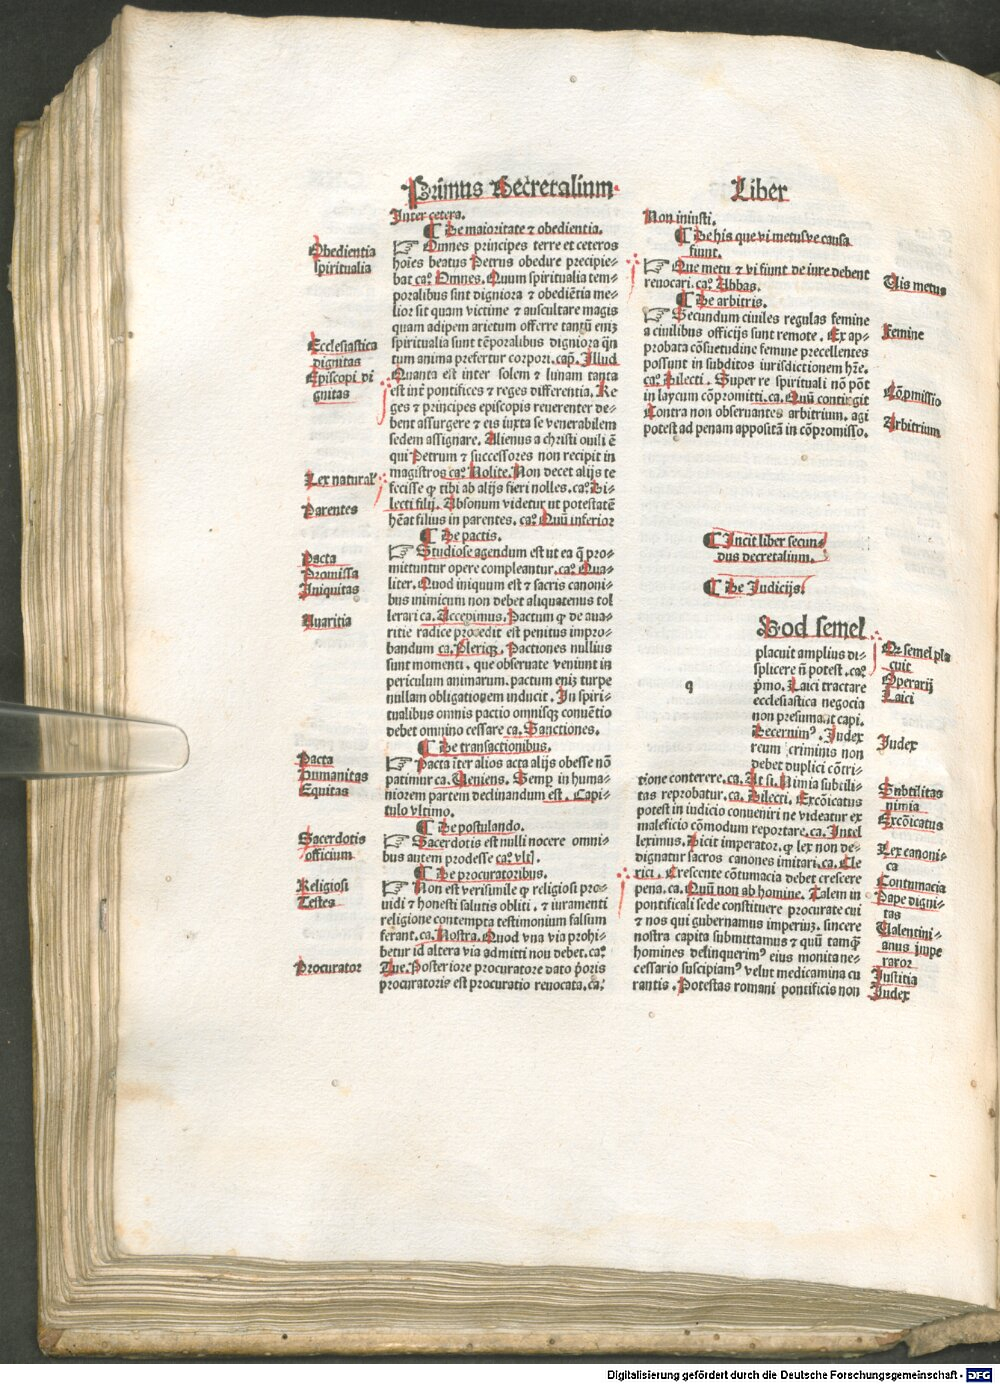 Primus Decretalium
Liber
Inter cetera.
¶ De maioritate ⁊ obedientia.
☞ Omnes principes terre et ceteros
hoīes beatus Petrus obedire precipie-
bat ca⁰ Omnes. Quum spiritualia tem-
poralibus sint digniora ⁊ obediētia me-
lior sit quam victime ⁊ auscultare magis
quam adipem arietum offerre tanq̄ eniꝫ
spiritualia sunt tēporalibus digniora q̄n
tum anima prefertur corpori. cap̄. Illud
Quanta est inter solem ⁊ lunam tanta
est int̄ pontifices ⁊ reges differentia. Re
ges ⁊ principes episcopis reuerenter de-
bent assurgere ⁊ eis iuxta se venerabilem
sedem assignare. Alienus a christi ouili ē
qui Petrum ⁊ successores non recipit in
magistros ca⁰ Nolite. Non decet alijs te
fecisse ꝙ tibi ab alijs fieri nolles. ca⁰ Di-
lecti filij. Absonum videtur ut potestatē
hēat filius in parentes. ca⁰ Quū inferior
¶ De pactis.
☞ Studiose agendum est ut ea q̄ pro-
mittuntur opere compleantur. ca⁰ Qua-
liter. Quod iniquum est ⁊ sacris canoni-
bus inimicum non debet aliquatenus tol
lerari ca. Accepimus. Pactum ꝙ de aua-
ritie radice procedit est penitus impro-
bandum ca. Pleriqꝫ. Pactiones nullius
sunt momenti, que obseruate veniunt in
periculum animarum. pactum eniꝫ turpe
nullam obligationem inducit. In spiri-
tualibus omnis pactio omnisqꝫ conuētio
debet omnino cessare ca. Sanctiones.
¶ De transactionibus.
☞ Pacta īter alios acta alijs obesse nō
patimur ca. Veniens. Semꝑ in huma-
niorem partem declinandum est. Capi-
tulo vltimo.
¶ De postulando.
☞ Sacerdotis est nulli nocere omni-
bus autem prodesse ca⁰ vlt].
¶ De procuratoribus.
☞ Non est verisimile ꝙ religiosi pro-
uidi ⁊ honesti salutis obliti. ⁊ iuramenti
religione contempta testimonium falsum
ferant. ca. Nostra. Quod vna via prohi-
betur id altera via admitti non debet. ca⁰
Tue. Posteriore procuratore dato p̄oris
procuratoris est procuratio reuocata. ca⁰
Obedientia
spiritualia
Ecclesiastica
dignitas
Episcopi di
gnitas
Lex natural'
Parentes
Pacta
Promissa
Iniquitas
Auaritia
Pacta
Humanitas
Equitas
Sacerdotis
officium
Religiosi
Testes
Procurator
Non iniusti.
¶ De his que vi metusve causa
fiunt.
☞ Que metu ⁊ vi fiunt de iure debent
reuocari. ca⁰ Abbas.
¶ De arbitris.
☞ Secundum ciuiles regulas femine
a ciuilibus officijs sunt remote. Ex ap-
probata cōsuetudine femine precellentes
possunt in subditos iurisdictionem hr̄e.
ca⁰ Dilecti. Super re spirituali nō pōt
in laycum cōpromitti. ca. Quū contingit
Contra non obseruantes arbitrium. agi
potest ad penam appositā in cōpromisso.
¶ Incit liber secun-
dus decretalium.
¶ De Iudicijs.
Quod semel
placuit amplius di-
splicere nō potest. ca⁰
p̄mo. Laici tractare
ecclesiastica negocia
non presumant capi.
Decernim⁹. Iudex
reum criminis non
debet duplici cōtri-
tione conterere. ca. At si. Nimia subtili-
tas reprobatur. ca. Dilecti. Excōicatus
potest in iudicio conueniri ne videatur ex
maleficio cōmodum reportare. ca. Intel
leximus. Dicit imperator. ꝙ lex non de-
dignatur sacros canones imitari. ca. Cle
rici. Crescente cōtumacia debet crescere
pena. ca. Quū non ab homine. Talem in
pontificali sede constituere procurate cui
⁊ nos qui gubernamus imperiuꝫ. sincere
nostra capita submittamus ⁊ quū tamq̄
homines delinquerim⁹ eius monita ne-
cessario suscipiam⁹ velut medicamina cu
rantis. Potestas romani pontificis non
q
Uis metus
Femine
Cōpmissio
Arbitrium
Qz semel pla
cuit
Operarij
Laici
Iudex
Subtilitas
nimia
Excōicatus
Lex canoni-
ca
Contumacia
Pape digni-
tas
Ualentini-
anus impe
rator
Iustitia
Iudex
Digitalisierung gefördert durch die Deutsche Forschungsgemeinschaft - DFG